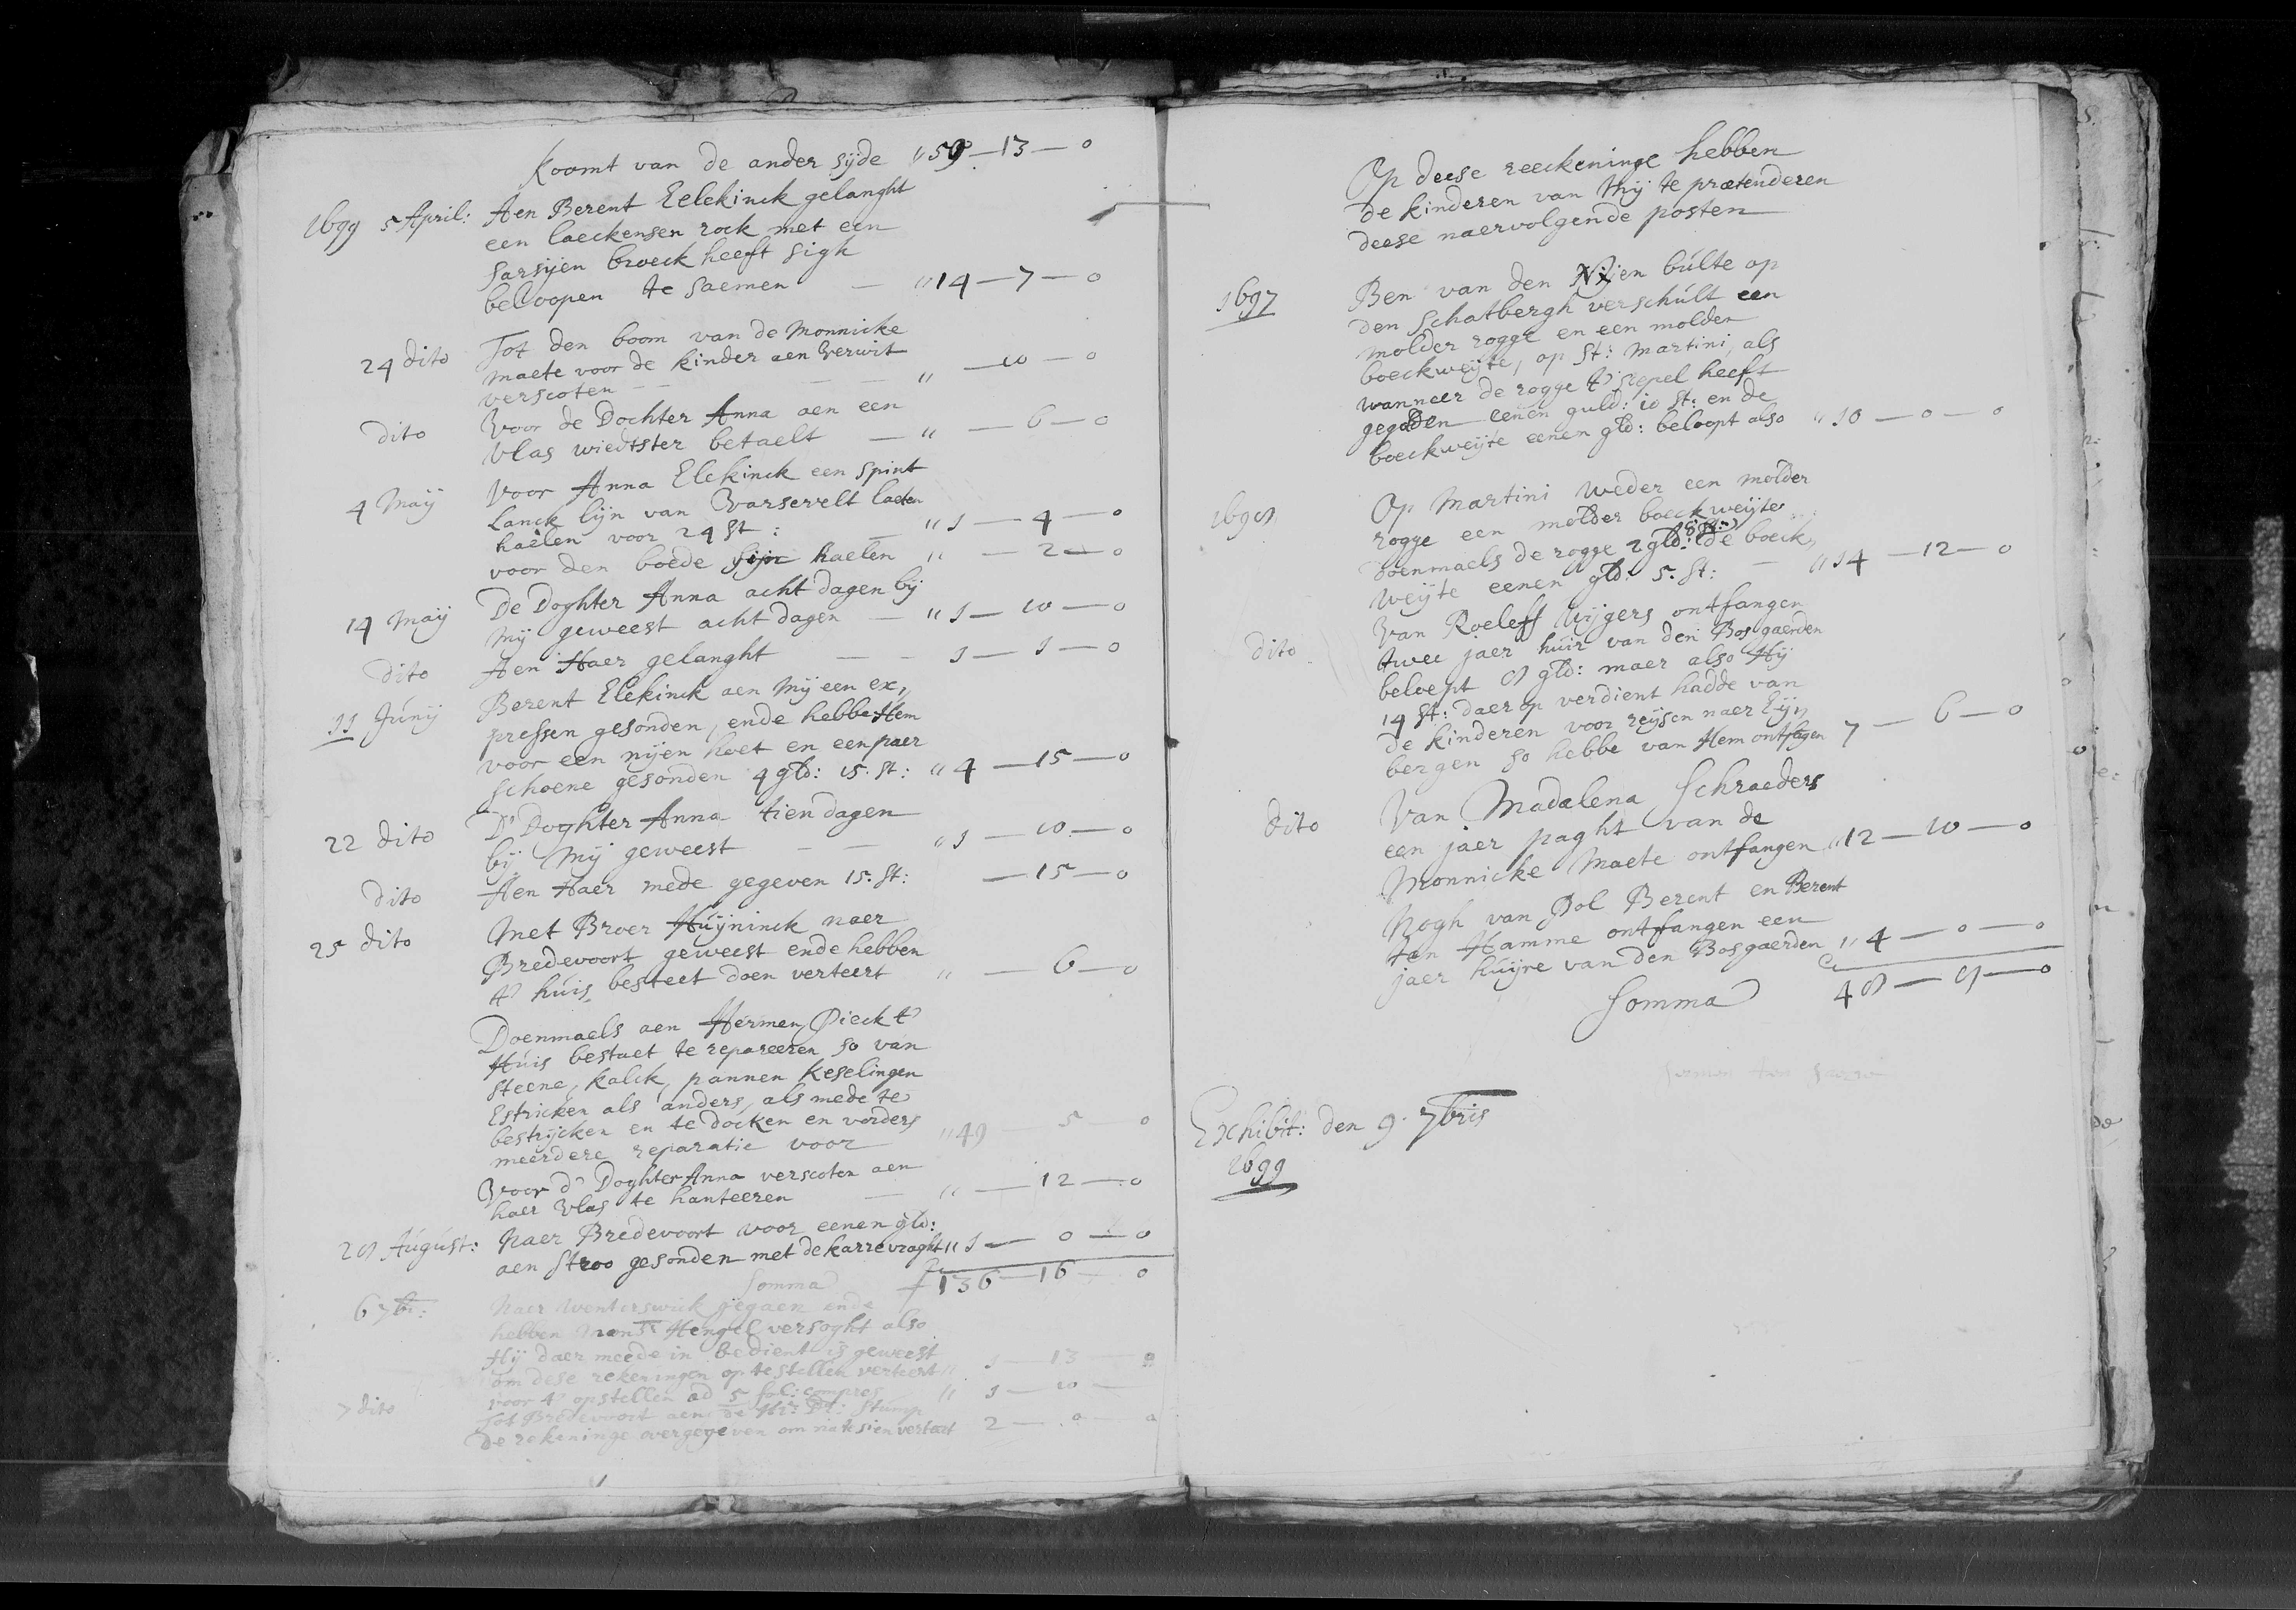 Koomt van de ander sijde " 59 — 13 — 0
1699 5 April: Aen Berent Eelekinck gelanght
een laeckensen rock met een
sarsijen broeck heeft sigh
beloopen te saemen — " 14 — 7 — 0
24 dito Tot den boom van de Monnicke
maete voor de kinder aen verwit
verscoten — " — 10 — 0
dito Voor de Dochter Anna aen een
vlas wiedtster betaelt — " — 6 — 0
4 Maij Voor Anna Elekinck een spint
Lanck lijn van Varsevelt laeten
haelen voor 24 St: — " 1 — 4 — 0
voor den boede haelen " — 2 — 0
14 Maij De Doghter Anna acht dagen bij
mij geweest acht dagen — " 1 — 10 — 0
dito Aen Haer gelanght — 1 — 1 — 0
11 Junij Berent Elekinck aen mij een ex,
pressen gesonden, ende hebbe Hem
voor een nijen hoet en een paer
schoene gesonden 4 gld: 15. St: " 4 — 15 — 0
22 dito D' Doghter Anna tien dagen
bij mij geweest — " 1 — 10 — 0
dito Aen Haer mede gegeven 15. St: — 15 — 0
25 dito Met Broer Huijninck naer
Bredevoort geweest ende hebben
t' huis besteet doen verteert " — 6 — 0
Doenmaels aen Hermen Pieck t'
Huis bestaet te repareeren so van
steene, kalck, pannen keselingen
Estricken als anders, als mede te
bestrijcken en te docken en vorders
meerdere reparatie voor " 49 5 — 0
Voor d' Doghter Anna verscoten aen
haer vlas te hanteeren — " — 12 — 0
28 August: Naer Bredevoort voor eenen gld:
aen stroo gesonden met de karre vraght " 1 — 0 — 0
Somma f 136 — 16 — 0
6 7br: Naer Wenterswick gegaen ende
hebben Monsr Hengel versoght also
Hij daer meede in bedient is geweest
om dese rekeningen op te stellen verteert " 1 — 13 — 0
voor t' opstellen ad 5 fol: compres " 1 — 10 —
7 dito Tot Bredevoort aen de Hr: Dr: Stump
De rekeninge overgegeven om naesien verteert 2 — 0 — 0
Op deese reeckeninge hebben
de kinderen van Mij te prætenderen
deese naervolgende posten
1697 Ben van den Nijen bulte op
den Schatbergh verschult een
molder rogge en een molder
boeckweijte, op St: Martini, als
wanneer de rogge t' scepel heeft
gegolden eenen guld: 10 St: en de
boeckweijte eenen gld: beloopt also " 10 — 0 — 0
1698 Op Martini weder een molder
rogge een molder boeckweijte
doenmaels de rogge 2 gld: 8 St: de boeck,
weijte eenen gld: 5. St: — " 14 — 12 — 0
dito Van Roeleff Wijgers ontfangen
twee jaer huir van den Bosgaerden
beloept 8 gld: maer also Hij
14 St: daer op verdient hadde van
de kinderen voor reijsen naer Eij,
bergen so hebbe van Hem ontfagen 7 — 6 — 0
dito Van Madalena Schraeders
een jaer paght van de
Monnicke Maete ontfangen " 12 — 10 — 0
Nogh van Dol Berent en Berent
ten Hamme ontfangen een
jaer huijre van den Bosgaerden " 4 — 0 — 0
Somma 48 — 8 — 0
Exhibit: den 9. 7bris
1699